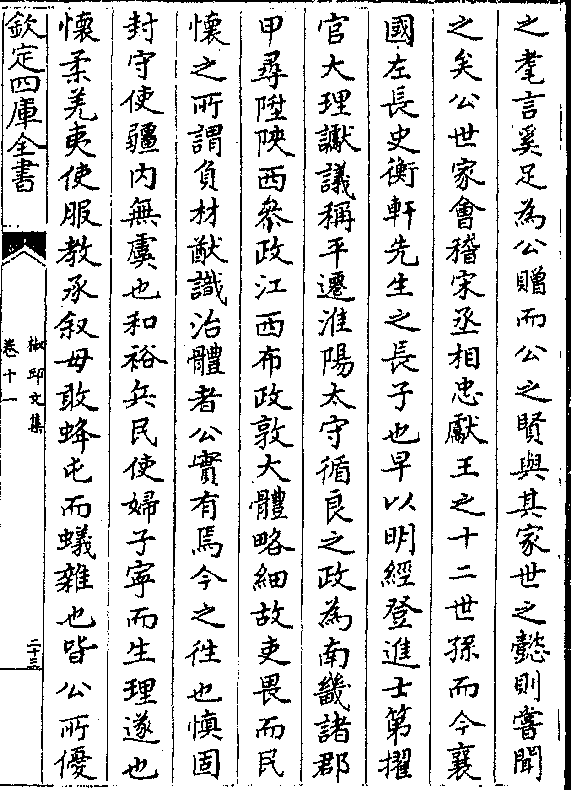 之耄言奚足為公贈而公之賢與其家世之懿則嘗聞
之矣公世家會稽宋丞相忠獻王之十二世孫而今襄
國左長史衡軒先生之長子也早以明經登進士第擢
官大理讞議稱平遷淮陽太守循良之政為南畿諸郡
甲尋陞陜西叅政江西布政敦大體略細故吏畏而民
懷之所謂負材猷識治體者公實有焉今之徃也慎固
封守使疆内無虞也和裕兵民使婦子寧而生理遂也
懷柔羌夷使服教承叙毋敢蜂屯而蟻雜也皆公所優
欽定四庫全書
椒邱文集
卷十一
二十三